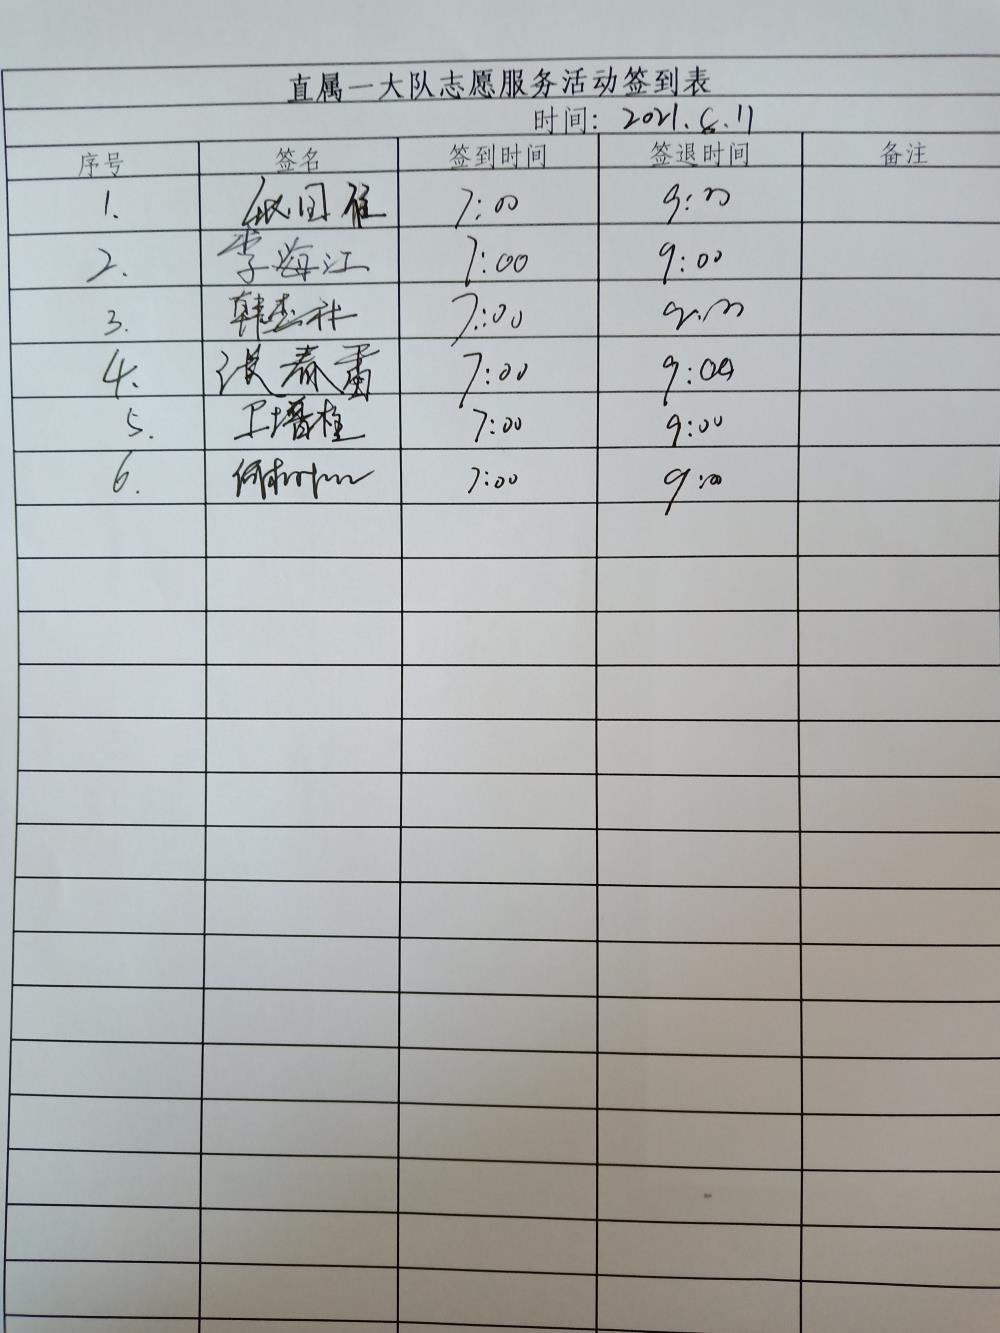 直属一大队志愿服务活动签到表
时间: 2021.8.11
序号 签名 签到时间 签退时间 备注
1. 7:00 9:00
2. 李海江 7:00 9:00
3. 韩 7:00 9:00
4. 春雷 7:00 9:00
5. 卫 7:00 9:00
6. 7:00 9:00